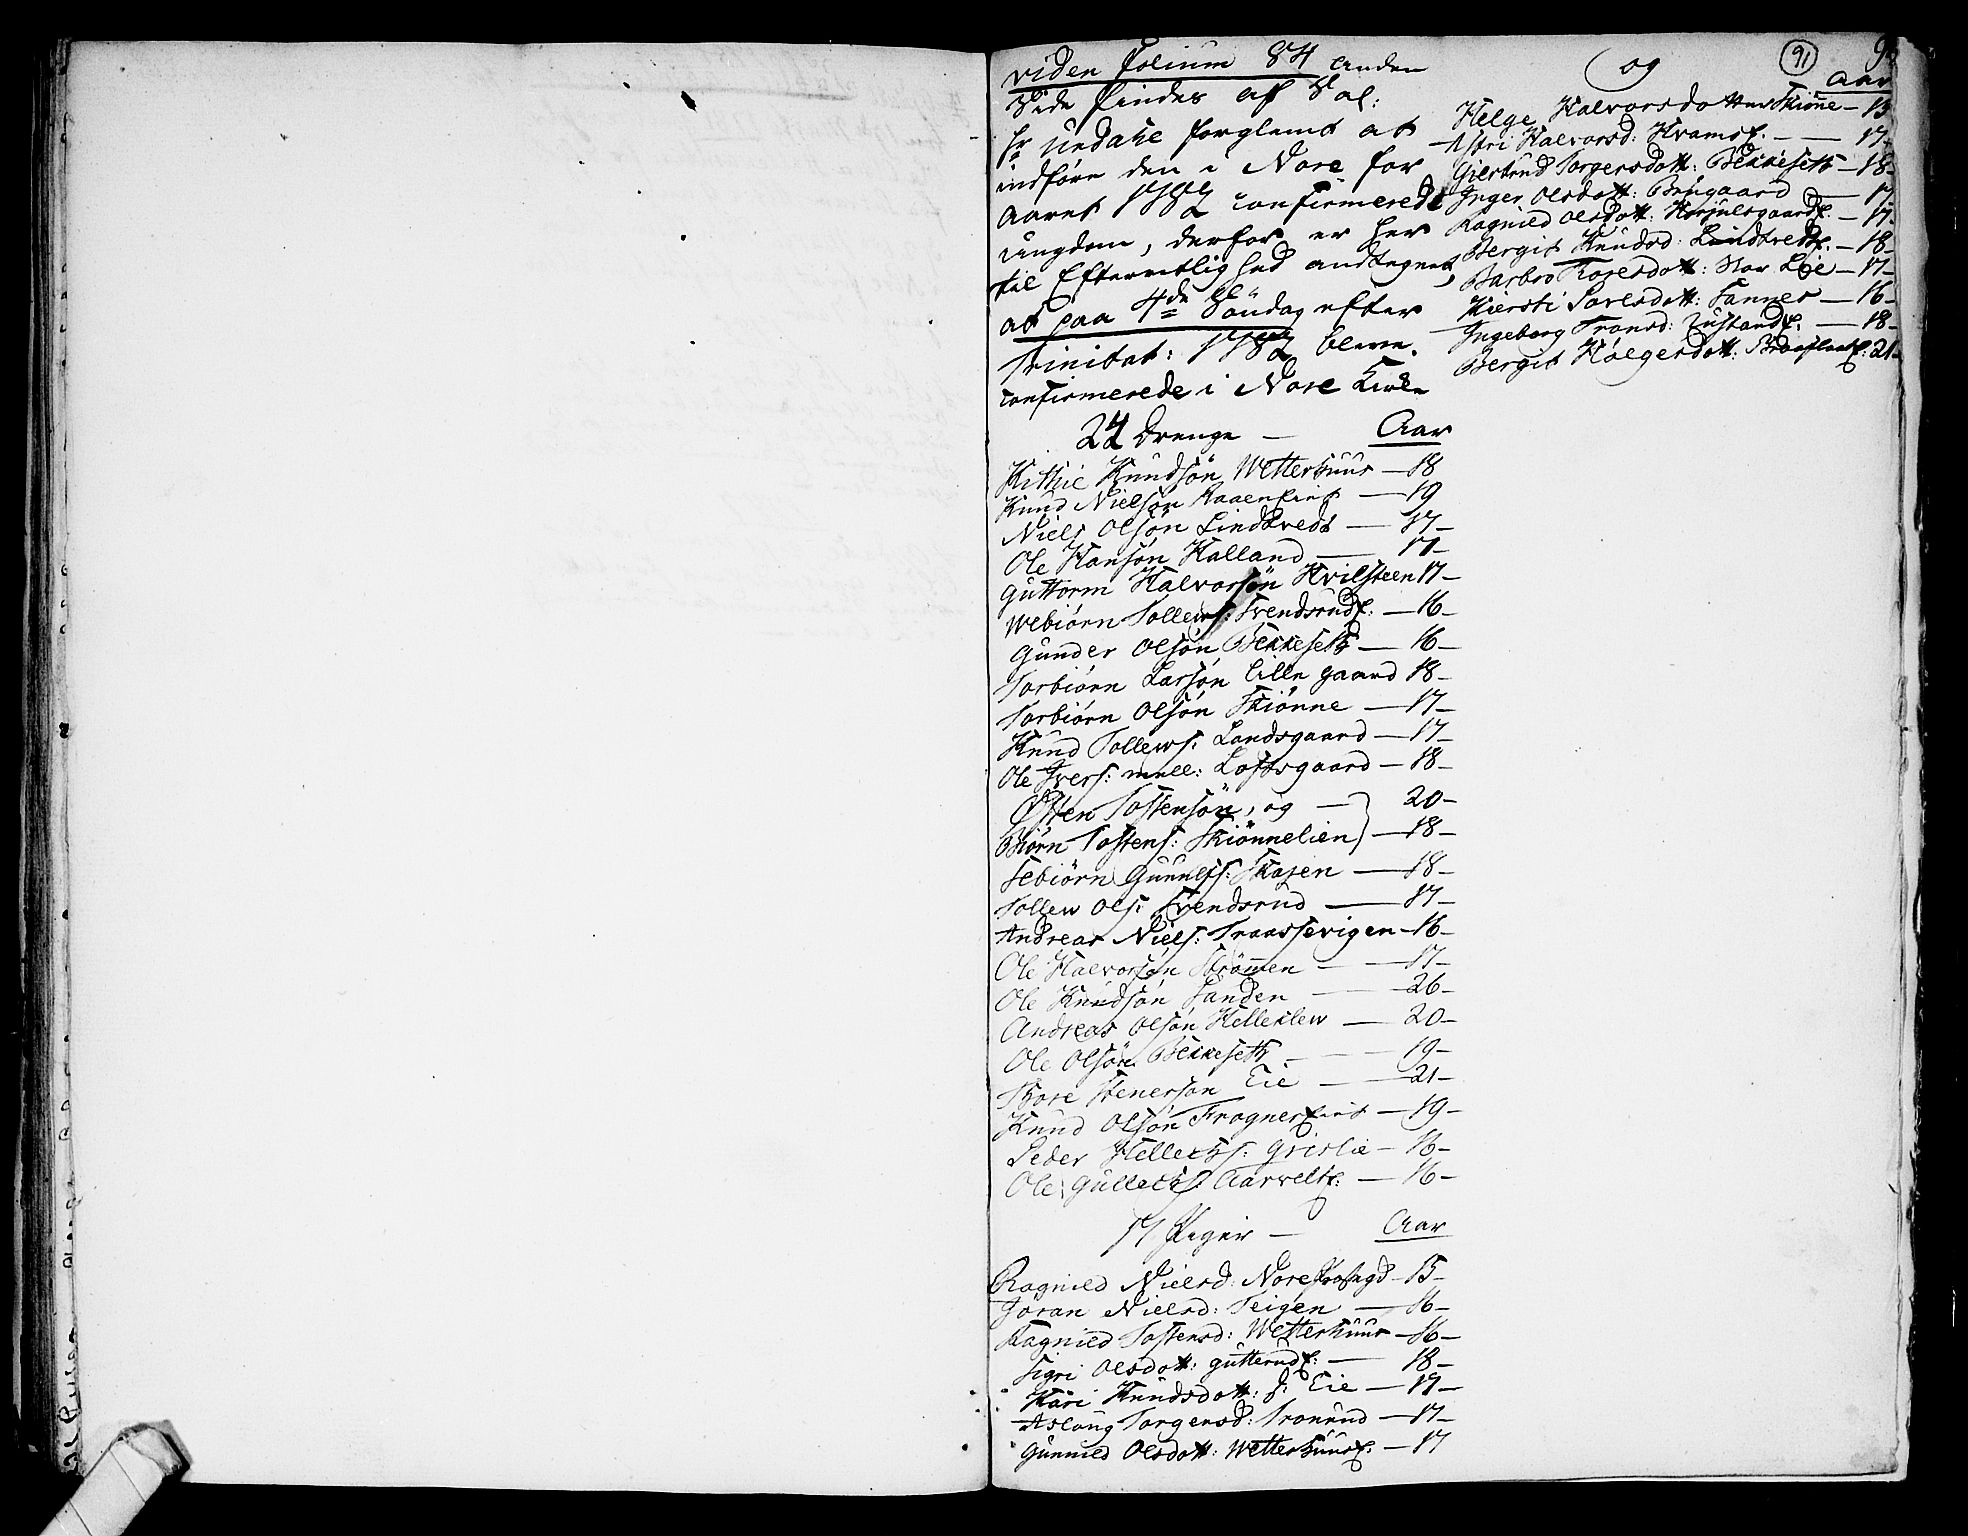 viden folium 84 anden
Side findes af Sal:
Hr Undahl forglemt at
indføre den i Nore for
Aaret 1782 confirmerede
ungdom, derfor er her
til Efterretlighed andtegnet,
at paa 4de Søndag efter
Trinitat: 1782 bleve
confirmerede i Nore Kirke
24 Drenge — Aar
Kittil Knudsøn Wetterhuus — 18
Knud Nielsøn — 19
Niels Olsøn Lindtvedt — 17 —
Ole Hansøn Halland — 17 —
Guttorm Halvorsøn Hvilsteen 17 —
Webiørn Tollews: Svendsrud — 16 —
Gunder Olsøn Bekkeseth — 16 —
Torbiørn Larsøn Lille gaard 18 —
Torbiørn Olsøn Skiønne — 17 —
Knud Tollews: Landsgaard — 17 —
Ole Ivers: mell: Loftsgaard — 18 —
Østen Tostensøn, og — 20 —
Biørn Tostens: Skiønnelien — 18 —
Sebiørn Gunulfs: Skajen — 18 —
Tollew Ols: Svendsrud — 17 —
Andreas Niels: Traassevigen — 16 —
Ole Halvorsøn Strømen — 17 —
Ole Knudsøn Sanden — 26 —
Andreas Olsøn Helleklew — 20 —
Ole Olsøn Bekkeseth — 19 —
Thore Stenersøn Eie — 21 —
Knud Olsøn — 19 —
Peder Hellechs: Grislie — 16 —
Ole Gullechs: Aarvelt — 16 —
17 Piger — Aar
Ragnild Nielsd: Nore — 15 —
Gøran Nielsd: Teigen — 16 —
Ragnild Tostensd: Wetterhuus — 16 —
Sigri Olsdott: Gutterud — 18 —
Kari Knudsdott: S: Eie — 19 —
Aslaug Torgersd: Tronrud — 17 —
Gunnild Olsdott: Wetterhuus — 17
og
91
Aar
Helge Halvorsdotter Skiønne — 15
Astri Halvorsd: Hvams — 17 —
Giertrud Torgersdott: Bekkeseth — 18 —
Inger Olsdott: Brugaard — 17
Ragnild Olsdott: — 17 —
Bergit Knudsd: Lindtvedt — 18 —
Barbro Toresdott: Nor Eie — 17 —
Kiersti Toresdott: Sannes — 16 —
Ingeborg Tronsd: Tustand — 18 —
Bergit Holgersdott: 21 —